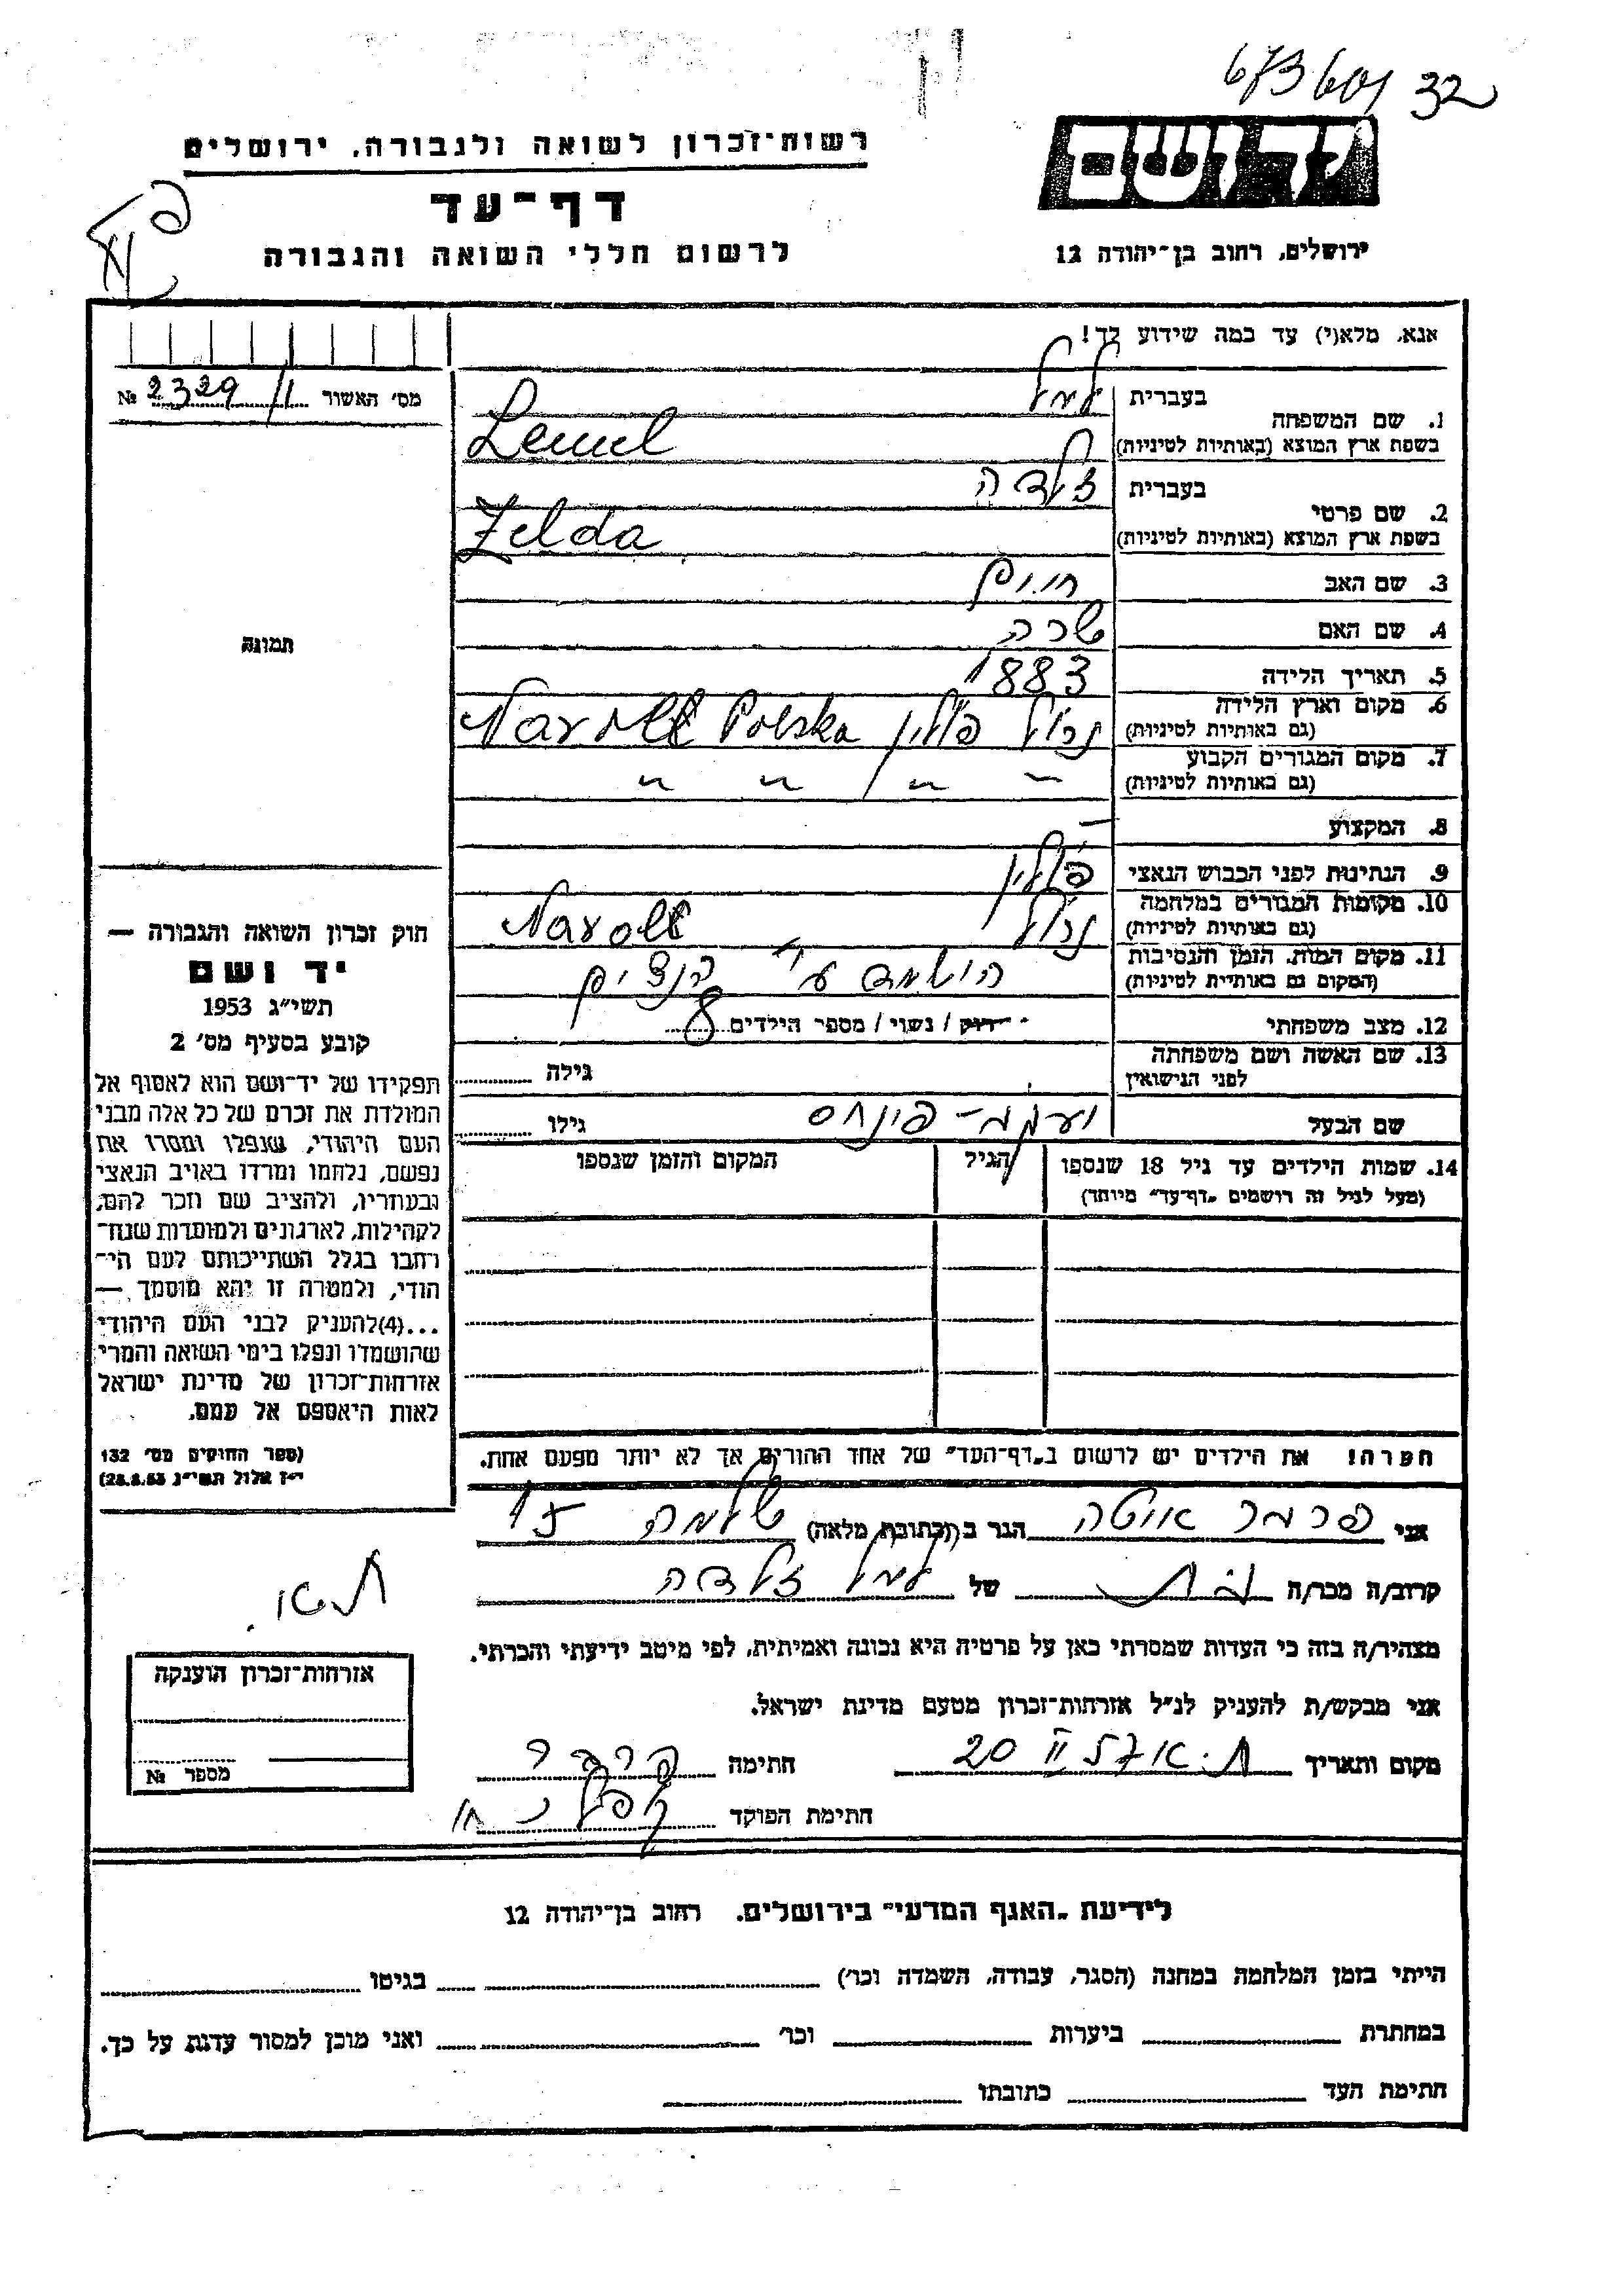 673601 32
יד ושם
רשות־זכרון לשואה ולגבורה, ירושלים
דף־עד
לרשום חללי השואה והגבורה
ירושלים, רחוב בן־יהודה 12
אנא, מלא(י) עד כמה שידוע לך!
מס׳ האשור 2329/11 №
1. שם המשפחה בעברית למל
בשפת ארץ המוצא (באותיות לטיניות) Lemel
2. שם פרטי בעברית זלדה
בשפת ארץ המוצא (באותיות לטיניות) Zelda
3. שם האב חיים
4. שם האם שרה
תמונה
5. תאריך הלידה 1883
6. מקום וארץ הלידה (גם באותיות לטיניות) נרול פולין Narol Polska
7. מקום המגורים הקבוע (גם באותיות לטיניות) " " " "
8. המקצוע –
9. הנתינות לפני הכבוש הנאצי פולין
10. מקומות המגורים במלחמה (גם באותיות לטיניות) נרול Narol
11. מקום המות, הזמן והנסיבות (המקום גם באותיית לטיניות) הושמד ע"י הנצים
12. מצב משפחתי רווק / נשוי / מספר הילדים 8
13. שם האשה ושם משפחתה לפני הנישואין גילה
שם הבעל יעקב - פינחס גילו
14. שמות הילדים עד גיל 18 שנספו הגיל המקום והזמן שנספו
(מעל לגיל זה רושמים „דף־עד" מיוחד)
חוק זכרון השואה והגבורה —
יד ושם
תשי״ג 1953
קובע בסעיף מס׳ 2
תפקידו של יד־ושם הוא לאסוף אל
המולדת את זכרם של כל אלה מבני
העם היהודי, שנפלו ומסרו את
נפשם, נלחמו ומרדו באויב הנאצי
ובעוזריו, ולהציב שם וזכר להם,
לקהילות, לארגונים ולמוסדות שנח־
רחבו בגלל השתייכותם לעם הי־
הודי, ולמטרה זו יהא מוסמך —
...(4)להעניק לבני העם היהודי
שהושמדו ונפלו בימי השואה והמרי
אזרחות־זכרון של מדינת ישראל
לאות היאספם אל עמם.
(ספר החוקים מס׳ 132
י״ז אלול תשי״ג 28.8.53)
הערה! את הילדים יש לרשום ב„דף־העד" של אחד ההורים אך לא יותר מפעם אחת.
אני פרבר איטה הגר ב (כתובת מלאה) שלמה
קרוב/ה מכר/ה בת של למל זלדה
מצהיר/ה בזה כי העדות שמסרתי כאן על פרטיה היא נכונה ואמיתית, לפי מיטב ידיעתי והכרתי.
אני מבקש/ת להעניק לנ״ל אזרחות־זכרון מטעם מדינת ישראל.
מקום ותאריך 20 II חתימה פרבר
חתימת הפוקד
אזרחות־זכרון הוענקה
מספר №
לידיעת „האגף המדעי" בירושלים, רחוב בן־יהודה 12
הייתי בזמן המלחמה במחנה (הסגר, עבודה, השמדה וכו׳) בגיטו
במחתרת ביערות וכו׳ ואני מוכן למסור עדות על כך.
חתימת העד כתובתו